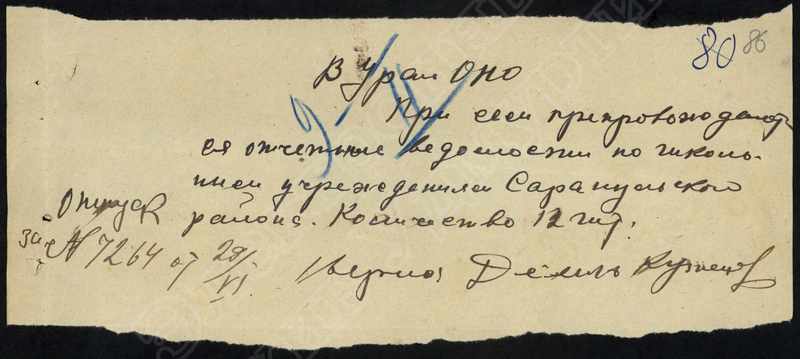 80 86
В Урал ОНО
При сем препровождают-
ся отчетные ведомости по школь-
ным учреждениям Сарапульского
района. Количество 12 шт.
Отпуск
за № 7264 от 29/VI
верно: Кузнецов